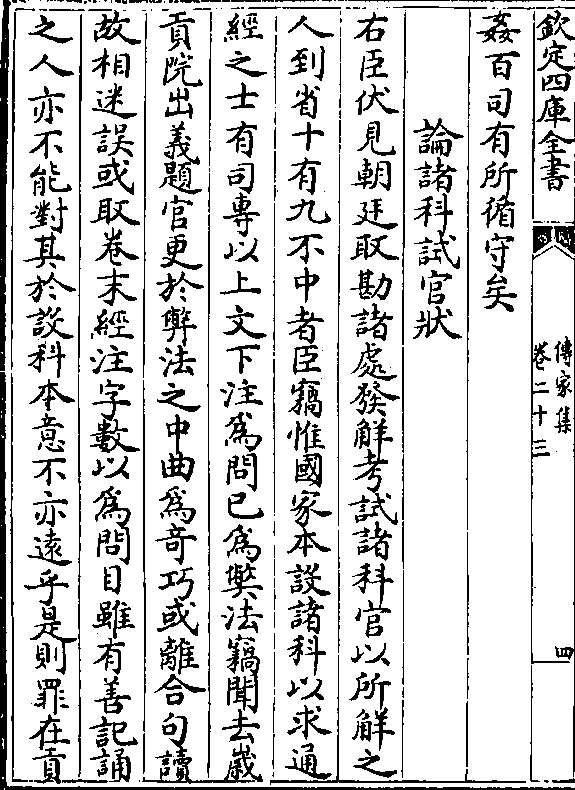 欽定四庫全書
傳家集
卷二十三
四
姦百司有所循守矣
論諸科試官狀
右臣伏見朝廷取勘諸處發解考試諸科官以所解之
人到省十有九不中者臣竊惟國家本設諸科以求通
經之士有司專以上文下注為問已為弊法竊聞去歲
貢院出義題官更於弊法之中曲為奇巧或離合句讀
故相迷誤或取卷末經注字數以為問目雖有善記誦
之人亦不能對其於設科本意不亦遠乎是則罪在貢